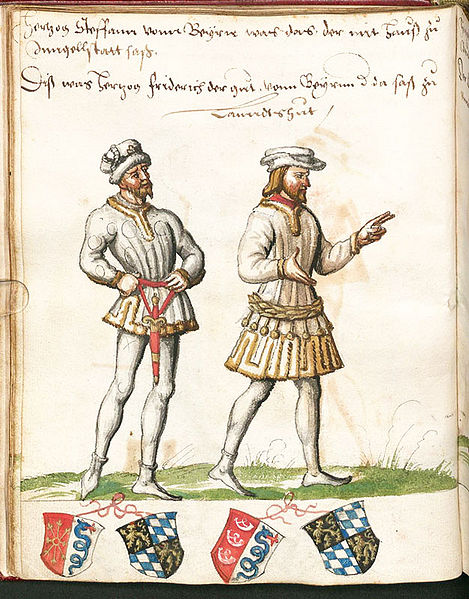 Herzog Steffann vonn Beÿrn was der mit Hauß zů
Ingollstatt saß.
Diß was Hertzog friderich der vonn Beÿrnn d da saß zů
Lanndtshůt